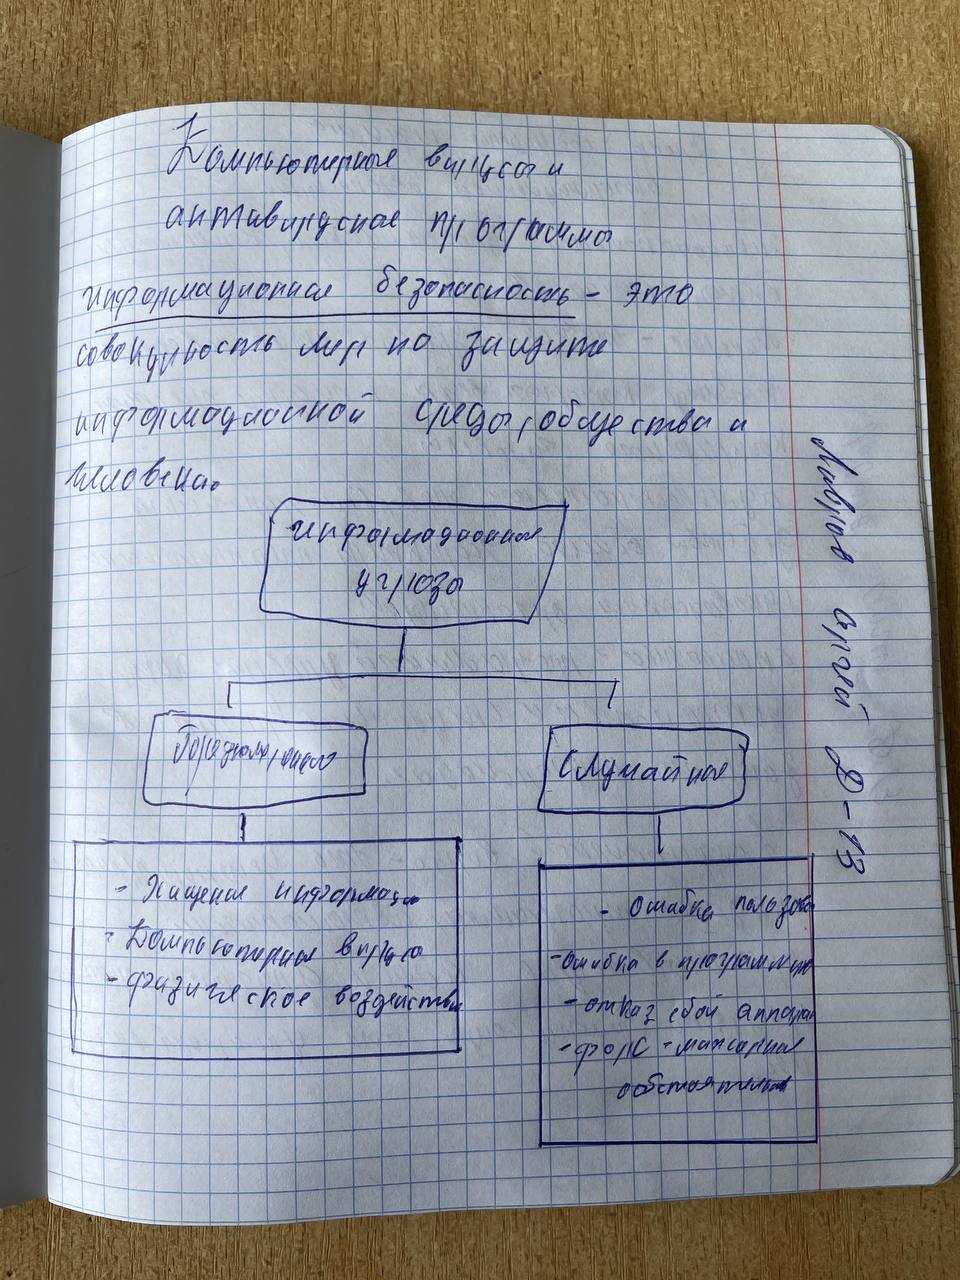 Компьютерные вирусы и
антивирусные программы
Информационная безопасность - это
совокупность мер по защите
информационной среды, общества и
человека.
Информационные
угрозы
Случайные
- Хищения информации
- Компьютерные вирусы
- физическое воздействие
- Ошибка пользов
- ошибка в программир
- отказ сбой аппара
- форс - мажорные
обстоятельств
Лавров Д-13